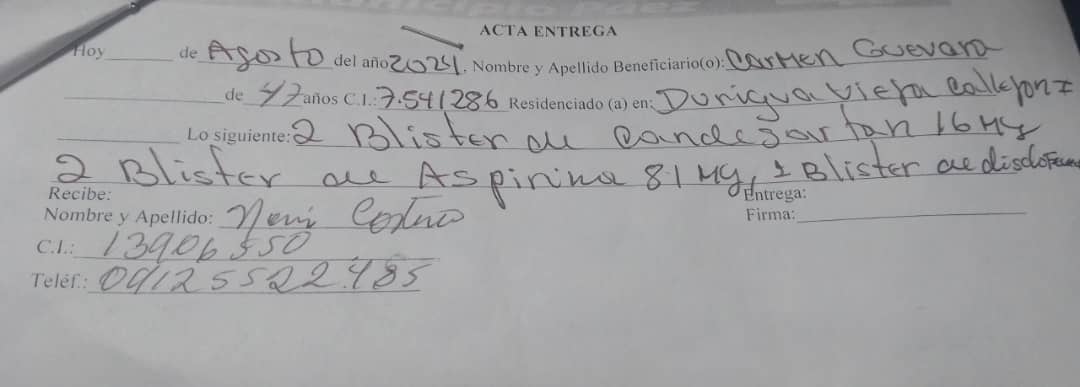 Municipio Páez
ACTA ENTREGA
Hoy______ de Agosto del año 2024. Nombre y Apellido Beneficiario(o): Carmen Guevara
____________ de 47 años C.I.: 7.541286 Residenciado (a) en: Durigua Vieja Callejon 2
____________ Lo siguiente: 2 Blister de Candesartan 16 Mg
2 Blister de Aspirina 81 Mg, 1 Blister de disclofenac
Recibe: Entrega:
Nombre y Apellido: Castro Firma:____________
C.I.: 13906550
Teléf.: 04125522485